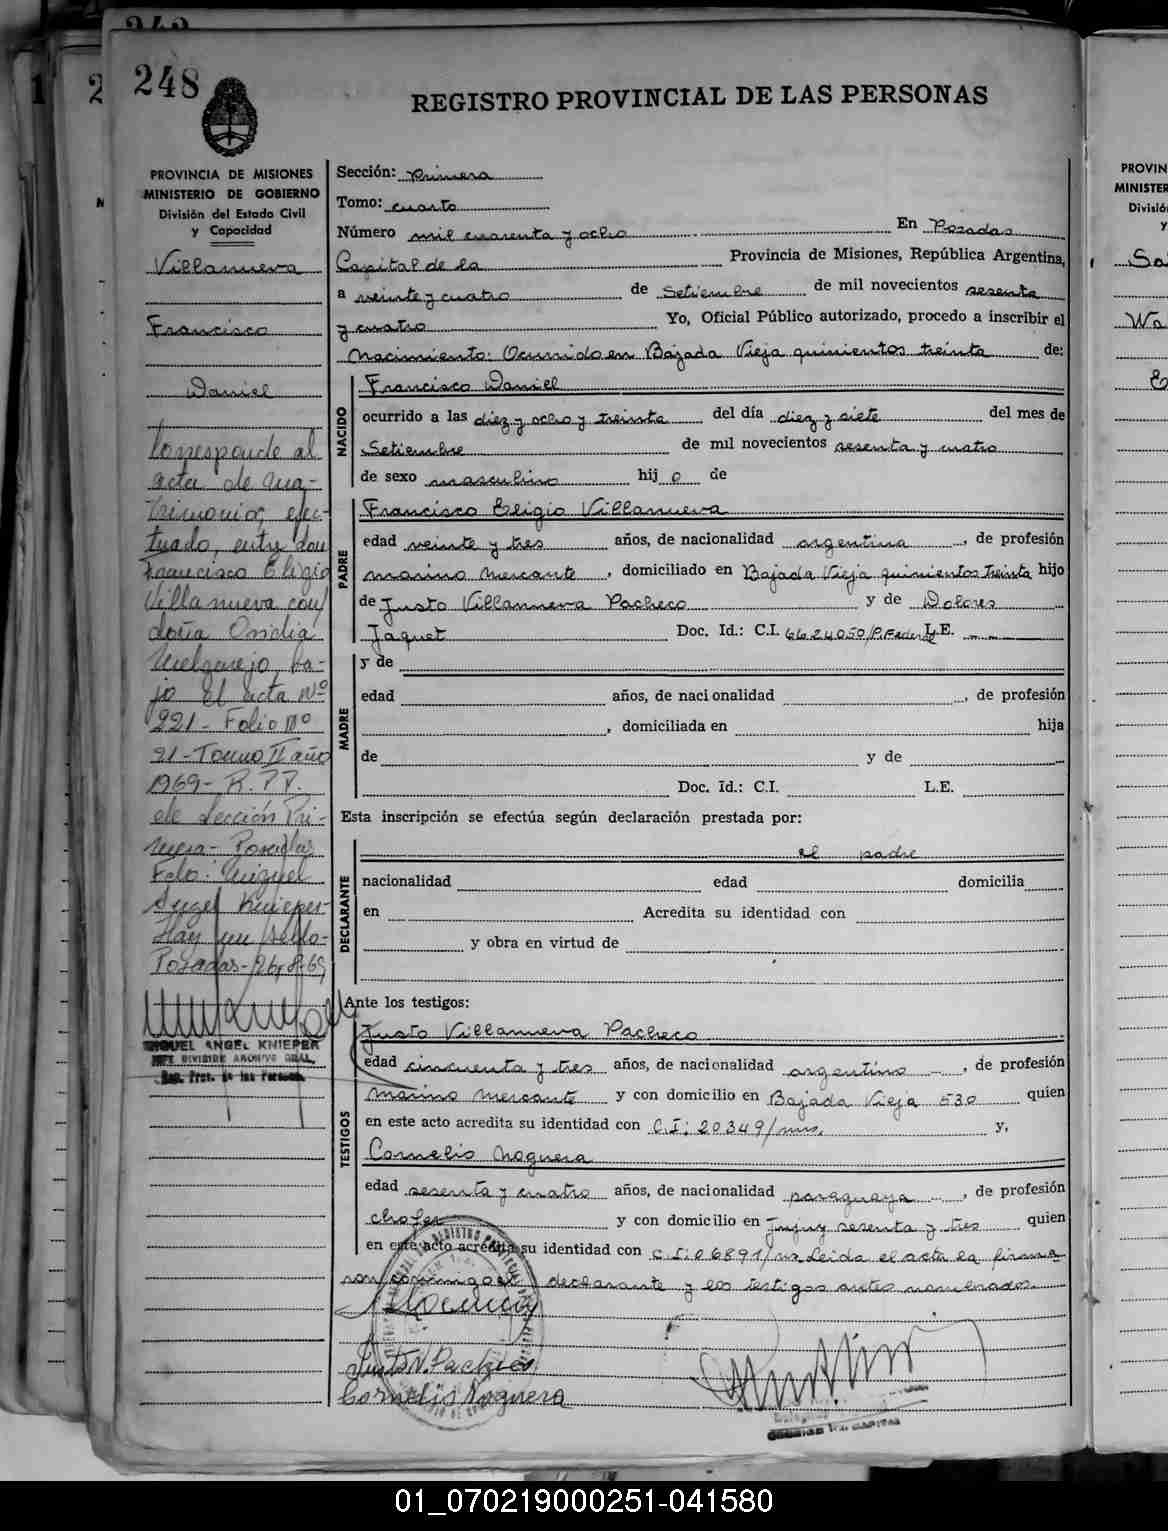 248
REGISTRO PROVINCIAL DE LAS PERSONAS
PROVINCIA DE MISIONES
MINISTERIO DE GOBIERNO
División del Estado Civil
y Capacidad
Villanueva
Francisco
Daniel
Corresponde al
acta de ma-
trimonio, efec-
tuado, entre don
Francisco Eligio
Villanueva con
doña Onidia
Melgarejo, ba-
jo el acta Nº
221 - Folio Nº
21 - Tomo II año
1969 - R.P.P.
de Sección Pri-
mera - Posadas
Fdo: Miguel
Angel Knieper-
Hay un sello-
Posadas - 26-8-69
MIGUEL ANGEL KNIEPER
JEFE DIVISION ARCHIVO GRAL.
Reg. Prov. de las Personas
Sección: Primera
Tomo: cuarto
Número mil cuarenta y ocho En Posadas
Capital de la Provincia de Misiones, República Argentina,
a veinte y cuatro de Setiembre de mil novecientos sesenta
y cuatro Yo, Oficial Público autorizado, procedo a inscribir el
Nacimiento: Ocurrido en Bajada Vieja quinientos treinta de:
NACIDO
Francisco Daniel
ocurrido a las diez y ocho y treinta del día diez y siete del mes de
Setiembre de mil novecientos sesenta y cuatro
de sexo masculino hij o de
PADRE
Francisco Eligio Villanueva
edad veinte y tres años, de nacionalidad argentina, de profesión
marino mercante, domiciliado en Bajada Vieja quinientos treinta hijo
de Justo Villanueva Pacheco y de Dolores
Jaquet Doc. Id.: C.I. 6624050/P.Federal L.E.
MADRE
y de
edad años, de nacionalidad , de profesión
, domiciliada en hija
de y de
Doc. Id.: C.I. L.E.
Esta inscripción se efectúa según declaración prestada por:
DECLARANTE
el padre
nacionalidad edad domicilia
en Acredita su identidad con
y obra en virtud de
Ante los testigos:
TESTIGOS
Justo Villanueva Pacheco
edad cincuenta y tres años, de nacionalidad argentino, de profesión
marino mercante y con domicilio en Bajada Vieja 530 quien
en este acto acredita su identidad con C.I: 20349/mis. y,
Cornelio Noguera
edad sesenta y cuatro años, de nacionalidad paraguaya, de profesión
chofer y con domicilio en Jujuy sesenta y tres quien
en este acto acredita su identidad con C.I: 06891/ms Leida el acta la firma
ron conmigo el declarante y los testigos antes nombrados.
Justo V. Pacheco
Cornelio Noguera
01_070219000251-041580